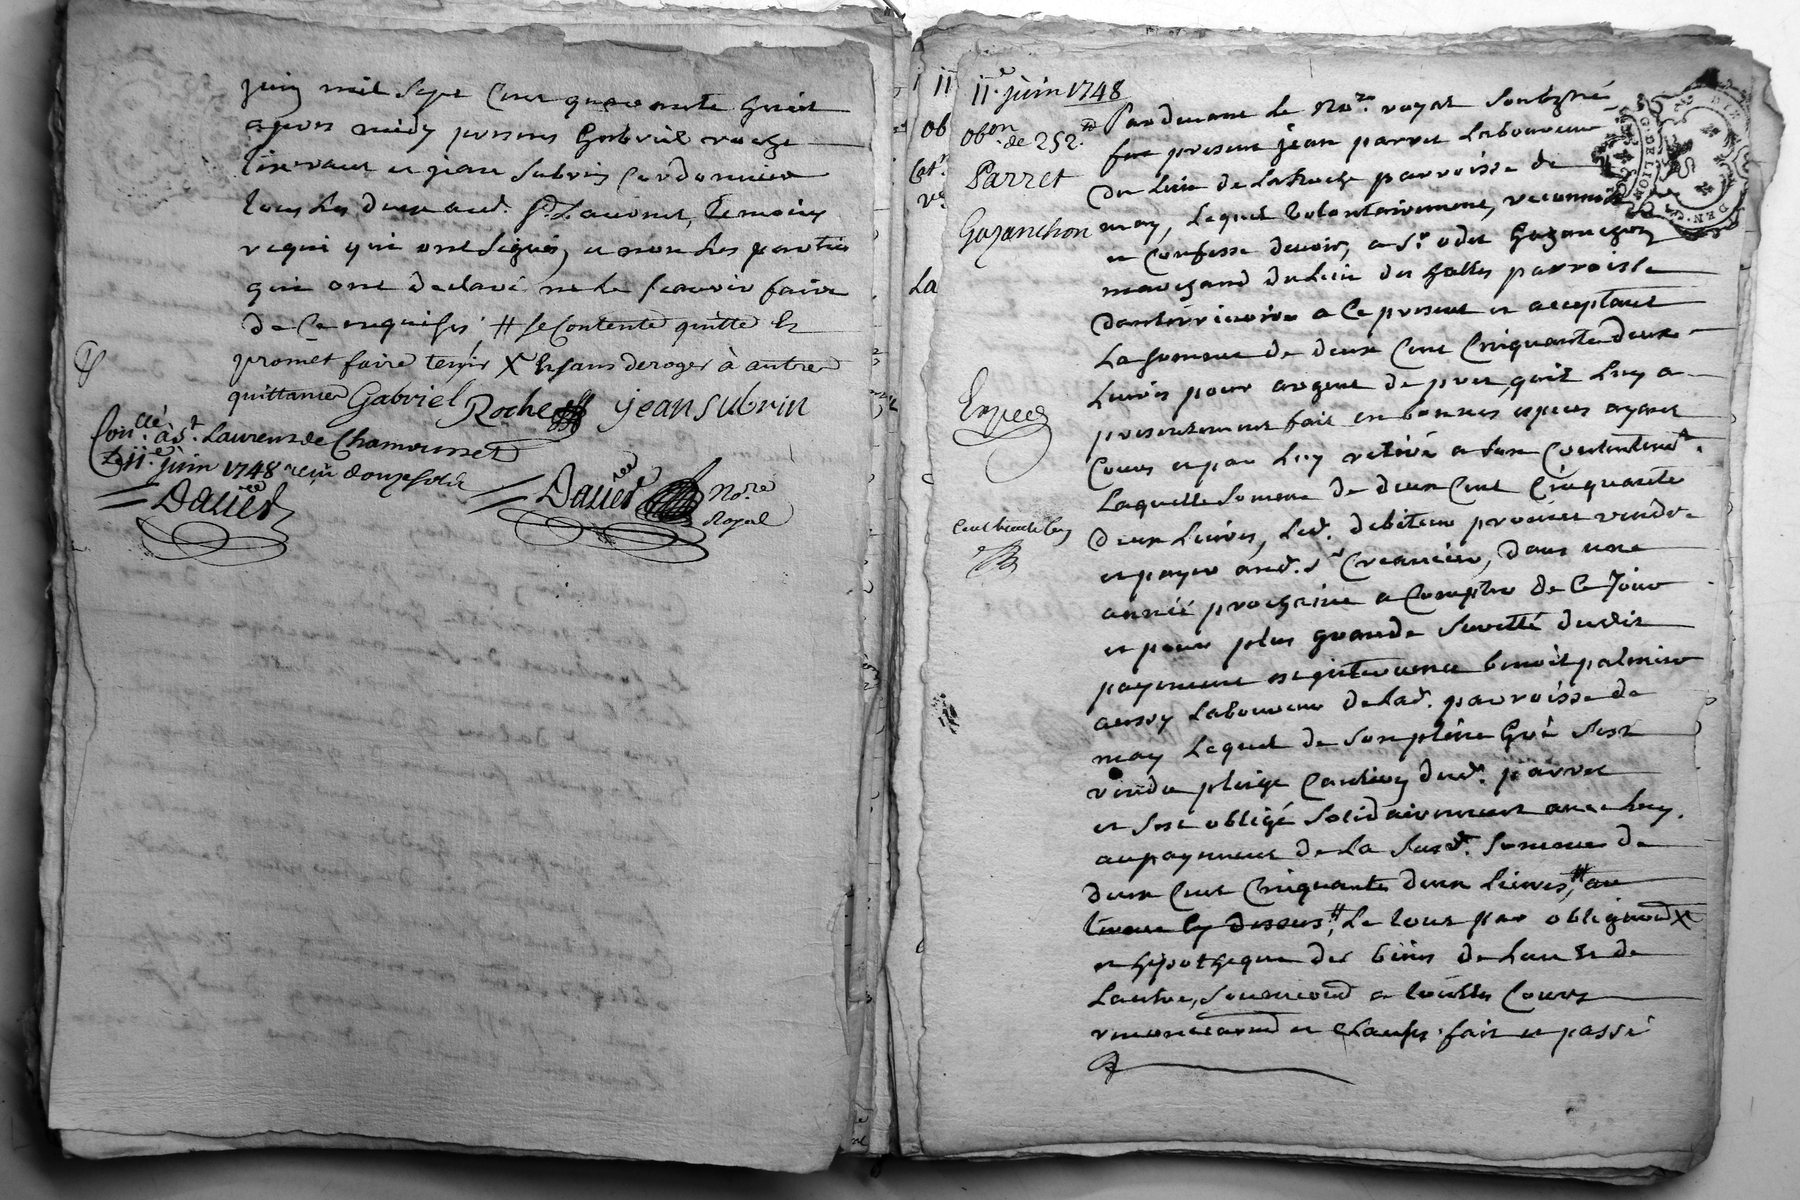 juin mil sept cent quarante huict
apres midy presens Gabriel roche
tisserant et jean subrin cordonnier
tous les deux aud. St. Laurent, temoins
requis qui ont signés, et non les parties
qui ont declaré ne le scavoir faire
de ce enquises # se contente quitte et
promet faire tenir X et sans deroger à autre
quittance Gabriel Roche jean subrin
Con.llé à St. Laurens de Chamousset
Le 11.e juin 1748 reçu douze sols
Dalier
Dalier No.re
Royal
11.e juin 1748
ob.on de 252.#
Parret
Gazanchon
Exped
Par devant le No.re royal soubsigné
fut present jean parret Laboureur
du lieu de la Roche parroisse de
may, Lequel volontairement, reconnoit
et confesse devoir, a Sr. odet Gazanchon
marchand du lieu des halles parroisse
a ce present et acceptant
La somme de deux cent cinquante deux
Livres pour argent de pret, quil luy a
presentement fait en bonnes especes ayant
cours et par luy retiré a son contentem.t
Laquelle somme de deux cent cinquante
deux Livres, led. debiteur promet rendre
et payer aud. Sr. Creancier, dans une
année prochaine a compter de ce jour
et pour plus grande sureté dudit
payement est intervenu benoit palmier
aussy Laboureur de lad. parroisse de
may Lequel de son plein Gré s'est
rendu pleige caution dud. parret
et s'est obligé solidairement avec luy
au payement de la susd. somme de
deux cent cinquante deux Livres, # au
terme cy dessus, # Le tout par obligaon X
et hipotheque des biens de l'un et de
Lautre, soumeond a touttes cours
renonciaond et clauses. fait et passé